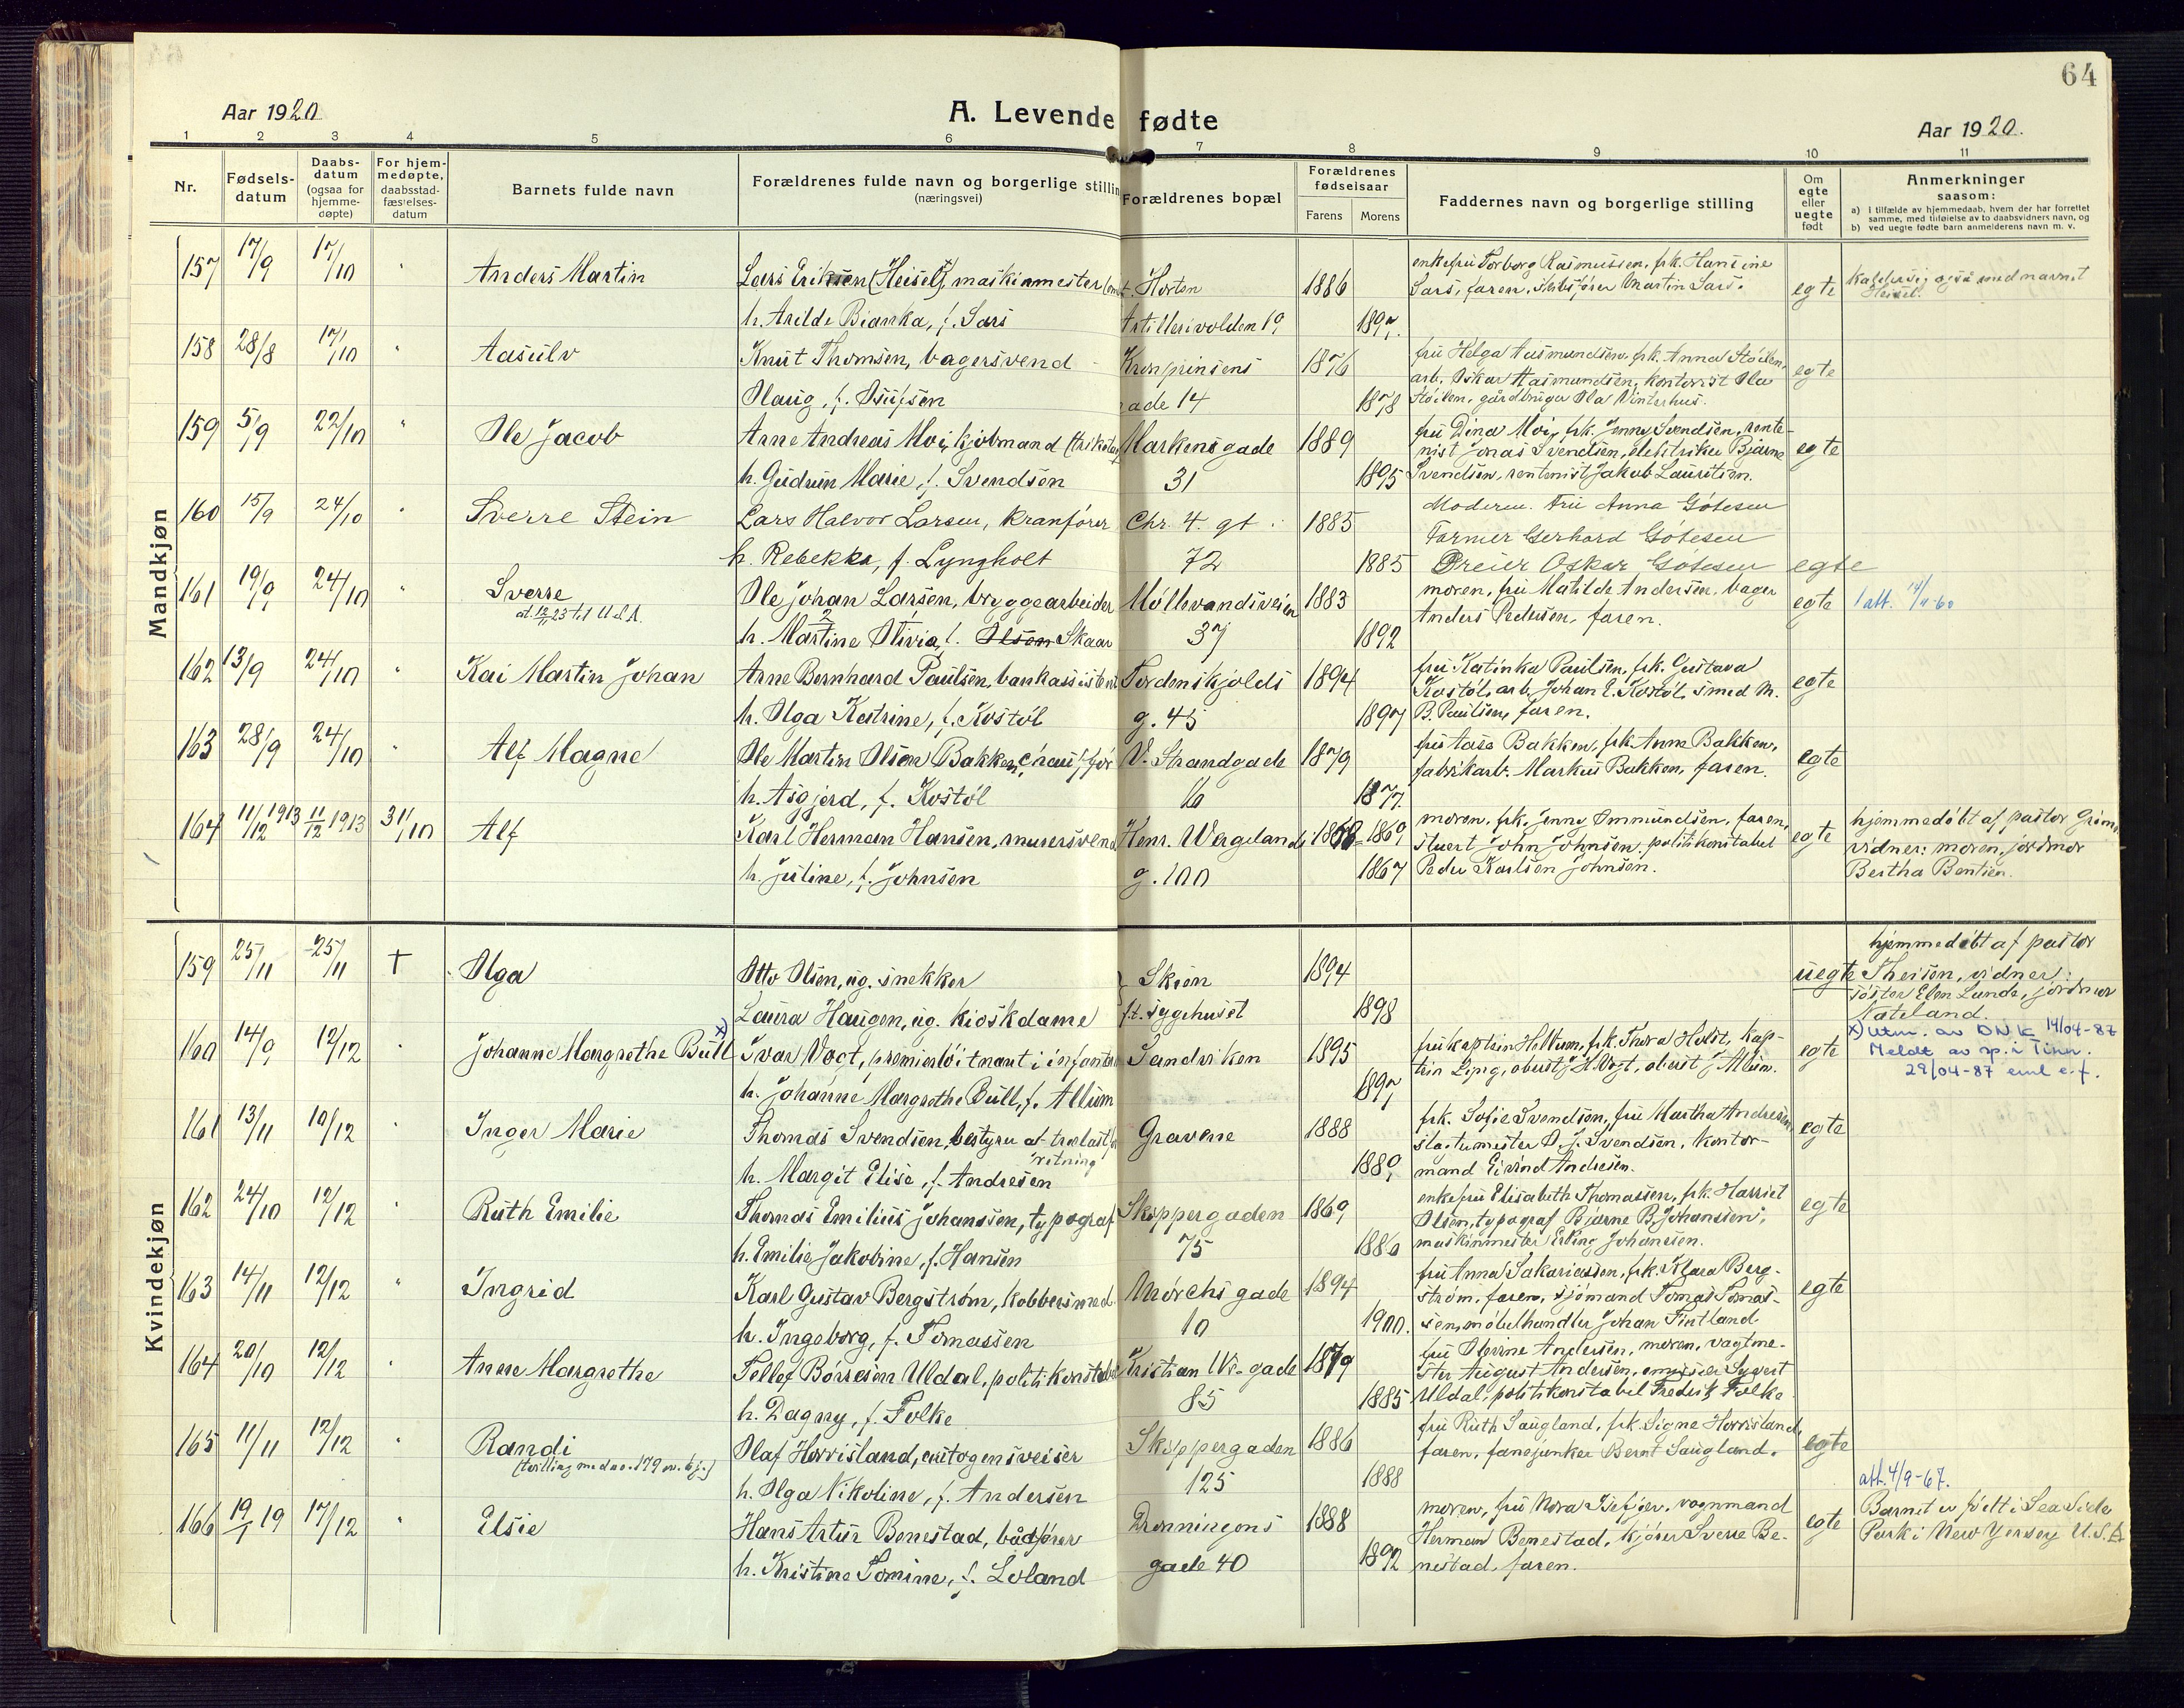 64
Aar 1920
A. Levende fødte
Aar 1920.
1 2 3 4 5 6 7 8 9 10 11
Nr.
Fødsels-
datum
Daabs-
datum
(ogsaa for
hjemme-
døpte)
For hjem-
medøpte,
daabsstad-
fæstelses-
datum
Barnets fulde navn
Forældrenes fulde navn og borgerlige stillin
(næringsvei)
Forældrenes bopæl
Forældrenes
fødselsaar
Farens Morens
Faddernes navn og borgerlige stilling
Om
egte
eller
uegte
født
Anmerkninger
saasom:
a) i tilfælde av hjemmedaab, hvem der har forrettet
samme, med tilføielse av to daabsvidners navn, og
b) ved uegte fødte barn anmelderens navn m. v.
Mandkjøn
157 17/9 17/10 " Anders Martin
Lars Eriksen (Heisel), maskinmester
h. Arilde Bianka, f. Sars
Horten
Artillerivolden
1886
enkefru Torborg Rasmussen, frk. Hansine
Sars, faren, skibsfører Martin Sars.
egte
kalder sig også med navnet
Heisel.
158 28/8 17/10 " Aasulv
Knut Thomsen, bagersvend
Olaug, f.
Kronprinsens
gade 14
1876
1878
fru Helga Aasmundsen, frk. Anna Stöilen,
arb. Oskar Aasmundsen, kontorist Ola
Stöilen, gårdbruger Ola Vinterhus.
egte
159 5/9 22/10 " Ole Jacob
Arne Andreas Moi, kjøbmand
h. Gudrun Marie, f. Svendsen
Markensgade
31
1889
1895
fru Dina Moi, frk. Jenny Svendsen, rente-
nist Jonas Svendsen, elektriker Bjarne
Svendsen, rentenist Jakob Lauritsen.
egte
160 15/9 24/10 " Sverre Stein
Lars Halvor Larsen, Kranfører
h. Rebekka, f. Lyngholt
Chr. 4. gt.
72
1885
1885
Moderen. Fru Anna Götesen
Farmer Gerhard Götesen
Dreier Oskar Götesen
egte
161 19/9 24/10 " Sverre
at. 12/11 23 til U.S.A.
Ole Johan Larsen, bryggearbeider
h. Martine Olivia, f. Olsen Skaar
Möllevandsveien
37
1883
1892
moren, fru Matilde Andersen, bager
Anders Pedersen, faren.
egte
1 att.
162 13/9 24/10 " Kai Martin Johan
Arne Bernhard Paulsen, bankassistent
h. Olga Katrine, f. Kostöl
Tordenskjolds
g. 45
1894
1897
fru Katinka Paulsen, frk. Gustava
Kostöl, arb. Johan E. Kostöl, smed M.
B. Paulsen, faren.
egte
163 28/9 24/10 " Alf Magne
Ole Martin Olsen Bakken,
h. Asgjerd, f. Kostöl
V. Strandgade
16
1879
1877
fru Aase Bakken, frk. Anna Bakken,
fabrikarb. Markus Bakken, faren.
egte
164 11/12 1913 11/12 1913 31/10 Alf
Karl Herman Hansen, murersvend
h. Justine, f. Johnsen
Henr. Wergelands
g. 100
1869
1867
moren, frk. Jenny Ommundsen, faren,
stuert John Johnsen, politikonstabel
Peder Karlsen Johnsen.
egte
hjemmedöbt af pastor
vidner: moren, jordmor
Bertha Bentsen.
Kvindekjøn
159 25/11 25/11 † Olga
Otto Olsen, ug. snekker
Laura Haugen, ug. kioskdame
Skien
f.t. sygehuset
1894
1898
uegte
hjemmedöbt af pastor
Theisen, vidner:
söster Elen Lunde, jordmor
Nateland.
160 14/9 12/12 Johanne Margrethe Bull x)
Ivar Vogt, premierlöitnant i infanteri
h. Johanne Margrethe Bull, f. Allum
Sandviken
1895
egte
x) Utm. av DNK 14/04-87
Meldt av sp. i Tinn.
29/04-87 eml e.f.
161 13/11 10/12 " Inger Marie
Thomas Svendsen, bestyrer af trælastfor
retning
h. Margit Elise, f. Andresen
Gravene
1888
1889
frk. Sofie Svendsen, fru Martha Andresen
O. J. Svendsen, kontor-
mand Eivind Andresen.
egte
162 24/10 12/12 " Ruth Emilie
Thomas Emilius Johanssen, typograf
h. Emilie Jakobine, f. Hansen
Skippergaden
75
1869
1880
enkefru Elisabeth Thomassen, frk. Harriet
Olsen, typograf Bjarne B. Johanssen,
maskinmester Erling Johansen.
egte
163 14/11 12/12 " Ingrid
Karl Gustav Bergström, kobbersmed
h. Ingeborg, f. Tomassen
Mörchs gade
10
1894
1900.
fru Anna Sakariassen, frk. Klara Berg-
ström, faren, sjömand Tomas Tomas-
sen, möbelhandler Johan Fintland
egte
164 20/10 12/12 " Anne Margrethe
Tellef Börresen Uldal, politikonstabel
h. Dagny, f. Folke
Kristian IVs gade
85
1879
1885
fru Olevine Andersen, moren, vagtme-
ster August Andersen, Sygurt
Uldal, politikonstabel Fredrik Folke
165 11/11 12/12 " Randi
(tvilling med no. 179 m. kj.)
Olaf Horrisland, autogensveiser
h. Olga Nikoline, f. Andersen
Skippergaden
125
1886
1888
fru Ruth Saugland, frk. Signe Horrisland,
faren, fanejunker Bernt Saugland.
egte
166 19/1 19 17/12 " Elsie
Hans Artur Benestad, bådfører
h. Kristine Tomine, f. Loland
Dronningens
gade 40
1888
1892
moren, fru Nora Isefjær, vognmand
Herman Benestad, kjörer Sverre Be-
nestad, faren.
egte
att. 4/9-67.
Barnet er född i Sea Side
Park i New Yersey U.S.A